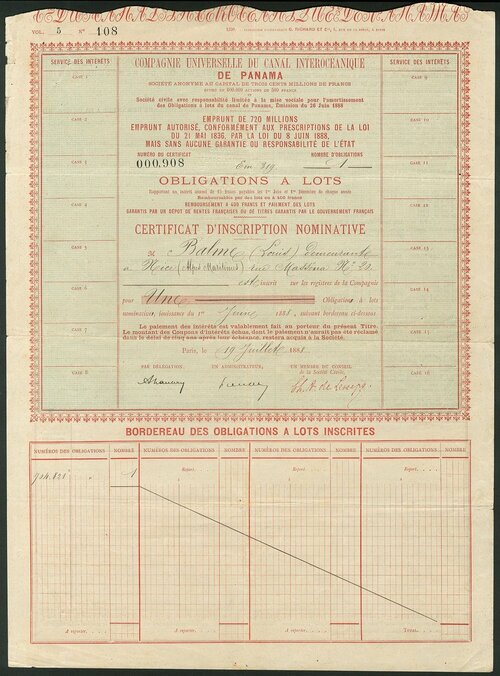 VOL. 5 N° 108
SERVICE DES INTÉRÊTS
CASE 1
CASE 2
CASE 3
CASE 4
CASE 5
CASE 6
CASE 7
CASE 8
COMPAGNIE UNIVERSELLE DU CANAL INTEROCÉANIQUE
DE PANAMA
SOCIÉTÉ ANONYME AU CAPITAL DE TROIS CENTS MILLIONS DE FRANCS
DIVISÉ EN 600.000 ACTIONS DE 500 FRANCS
Société civile avec responsabilité limitée à la mise sociale pour l'amortissement
des Obligations à lots du canal de Panama, Émission du 26 Juin 1888
EMPRUNT DE 720 MILLIONS
EMPRUNT AUTORISÉ, CONFORMÉMENT AUX PRESCRIPTIONS DE LA LOI
DU 21 MAI 1836, PAR LA LOI DU 8 JUIN 1888,
MAIS SANS AUCUNE GARANTIE OU RESPONSABILITÉ DE L'ÉTAT
NUMÉRO DU CERTIFICAT
000,908
NOMBRE D'OBLIGATIONS
1
OBLIGATIONS A LOTS
Rapportant un intérêt annuel de 15 francs payables les 1er Juin et 1er Décembre de chaque année
Remboursables par des lots ou à 400 francs
REMBOURSEMENT A 400 FRANCS ET PAIEMENT DES LOTS
GARANTIS PAR UN DÉPOT DE RENTES FRANÇAISES OU DE TITRES GARANTIS PAR LE GOUVERNEMENT FRANÇAIS
CERTIFICAT D'INSCRIPTION NOMINATIVE
M Balme (Louis) demeurant
à Nice (Alpes Maritimes) rue Masséna N° 20
est inscrit sur les registres de la Compagnie
pour Une Obligation à lots
nominatives, jouissance du 1er Juin 1888, suivant bordereau ci-dessous.
Le paiement des Intérêts est valablement fait au porteur du présent Titre.
Le montant des Coupons d'intérêts échus, dont le paiement n'aurait pas été réclamé
dans le délai de cinq ans après leur échéance, restera acquis à la Société.
Paris, le 19 Juillet 1888
PAR DÉLÉGATION,
UN ADMINISTRATEUR,
UN MEMBRE DU CONSEIL
de la Société Civile,
Ch. A. de Lesseps
SERVICE DES INTÉRÊTS
CASE 9
CASE 10
CASE 11
CASE 12
CASE 13
CASE 14
CASE 15
CASE 16
BORDEREAU DES OBLIGATIONS A LOTS INSCRITES
NUMÉROS DES OBLIGATIONS NOMBRE NUMÉROS DES OBLIGATIONS NOMBRE NUMÉROS DES OBLIGATIONS NOMBRE NUMÉROS DES OBLIGATIONS NOMBRE
Report. Report. Report.
1
A reporter. A reporter. A reporter. Total.